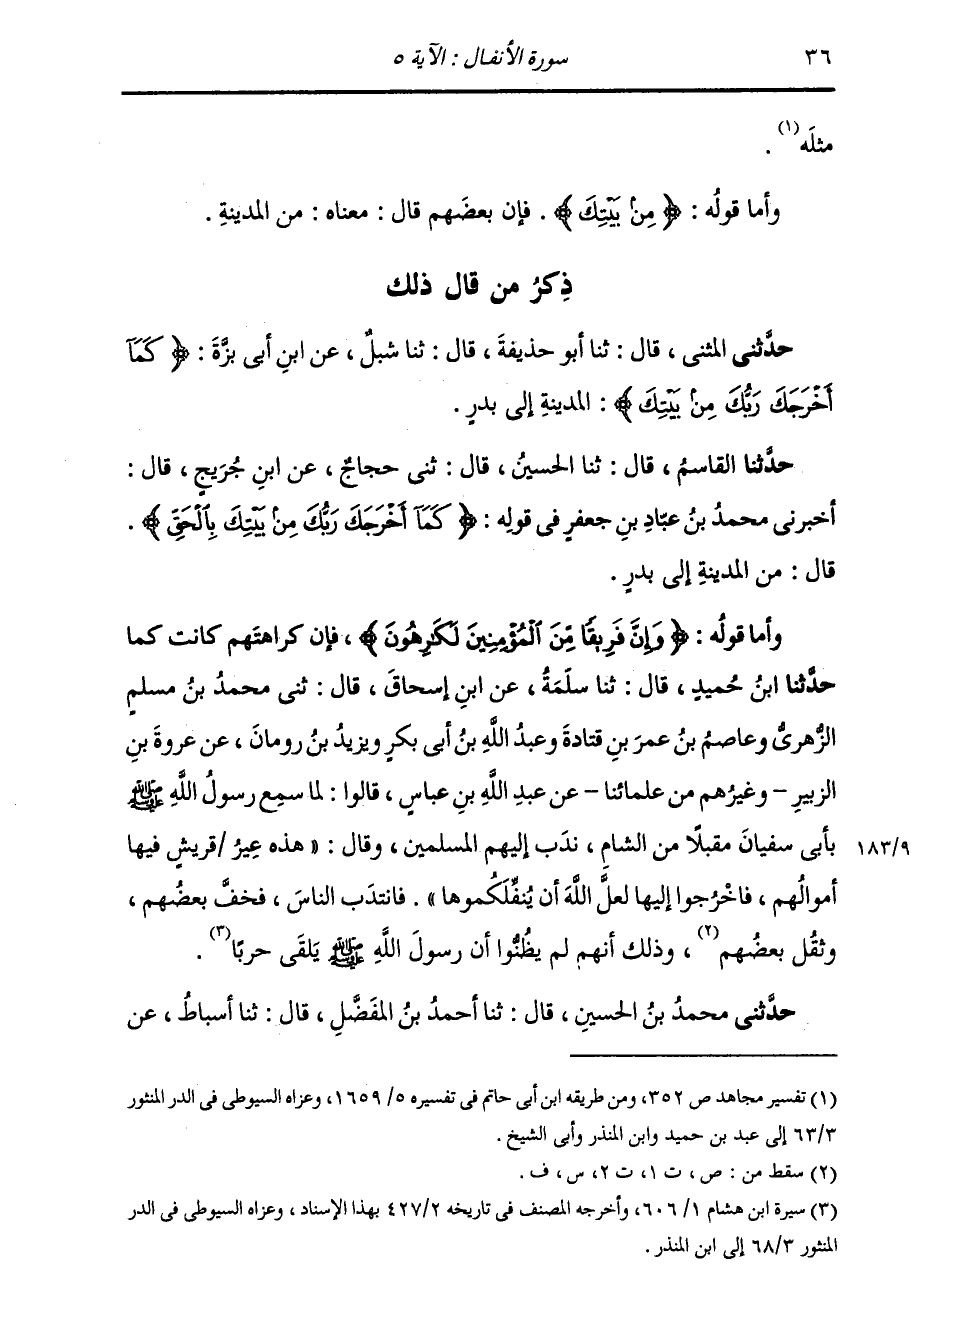 ٣٦ سورة الأنفال : الآية ٥
مثلَه(١) .
وأما قولُه : ﴿ مِنۢ بَيْتِكَ ﴾ . فإن بعضَهم قال : معناه : من المدينةِ .
ذِكرُ من قال ذلك
حدَّثنى المثنى ، قال : ثنا أبو حذيفةَ ، قال : ثنا شبلٌ ، عن ابنِ أبى بزَّةَ : ﴿ كَمَآ
أَخْرَجَكَ رَبُّكَ مِنۢ بَيْتِكَ ﴾ : المدينةِ إلى بدرٍ .
حدَّثنا القاسمُ ، قال : ثنا الحسينُ ، قال : ثنى حجاجٌ ، عن ابنِ جُرَيجٍ ، قال :
أخبرنى محمدُ بنُ عبّادِ بنِ جعفرٍ فى قولِه : ﴿ كَمَآ أَخْرَجَكَ رَبُّكَ مِنۢ بَيْتِكَ بِٱلْحَقِّ ﴾ .
قال : من المدينةِ إلى بدرٍ .
وأما قولُه : ﴿ وَإِنَّ فَرِيقًا مِّنَ ٱلْمُؤْمِنِينَ لَكَٰرِهُونَ ﴾ ، فإن كراهتَهم كانت كما
حدَّثنا ابنُ حُميدٍ ، قال : ثنا سلَمةُ ، عن ابنِ إسحاقَ ، قال : ثنى محمدُ بنُ مسلمٍ
الزُّهرىُّ وعاصمُ بنُ عمرَ بنِ قتادةَ وعبدُ اللَّهِ بنُ أبى بكرٍ ويزيدُ بنُ رومانَ ، عن عروةَ بنِ
الزبيرِ - وغيرُهم من علمائنا - عن عبدِ اللَّهِ بنِ عباسٍ ، قالوا : لما سمِع رسولُ اللَّهِ ﷺ
بأبى سفيانَ مقبلًا من الشامِ ، ندَب إليهم المسلمين ، وقال : « هذه عِيرُ /قريشٍ فيها ١٨٣/٩
أموالُهم ، فاخْرُجوا إليها لعلَّ اللَّهَ أن يُنفِّلَكُموها » . فانتدَب الناسَ ، فخفَّ بعضُهم ،
وثقُل بعضُهم(٢) ، وذلك أنهم لم يظُنُّوا أن رسولَ اللَّهِ ﷺ يَلقَى حربًا(٣) .
حدَّثنى محمدُ بنُ الحسينِ ، قال : ثنا أحمدُ بنُ المفَضَّلِ ، قال : ثنا أسباطُ ، عن
(١) تفسير مجاهد ص ٣٥٢، ومن طريقه ابن أبى حاتم فى تفسيره ٥/ ١٦٥٩، وعزاه السيوطى فى الدر المنثور
٦٣/٣ إلى عبد بن حميد وابن المنذر وأبى الشيخ .
(٢) سقط من : ص ، ت ١، ت ٢، س ، ف .
(٣) سيرة ابن هشام ١/ ٦٠٦، وأخرجه المصنف فى تاريخه ٤٢٧/٢ بهذا الإسناد ، وعزاه السيوطى فى الدر
المنثور ٦٨/٣ إلى ابن المنذر .